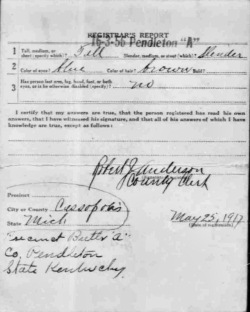 REGISTRAR'S REPORT
16-3-56 Pendleton "A"
1 Tall, medium, or short (specify which)? Tall Slender, medium, or stout (which)? Slender
2 Color of eyes? Blue Color of hair? Brown
3 Has person lost arm, leg, hand, foot, or both eyes, or is he otherwise disabled (specify)? no
I certify that my answers are true, that the person registered has read his own
answers, that I have witnessed his signature, and that all of his answers of which I have
knowledge are true, except as follows:
Robert J. Anderson
County Clerk
Precinct
City or County Cassopolis
State Mich
May 25, 1917
(Date of registration)
Butler "A"
Co, Pendleton
State Kentucky